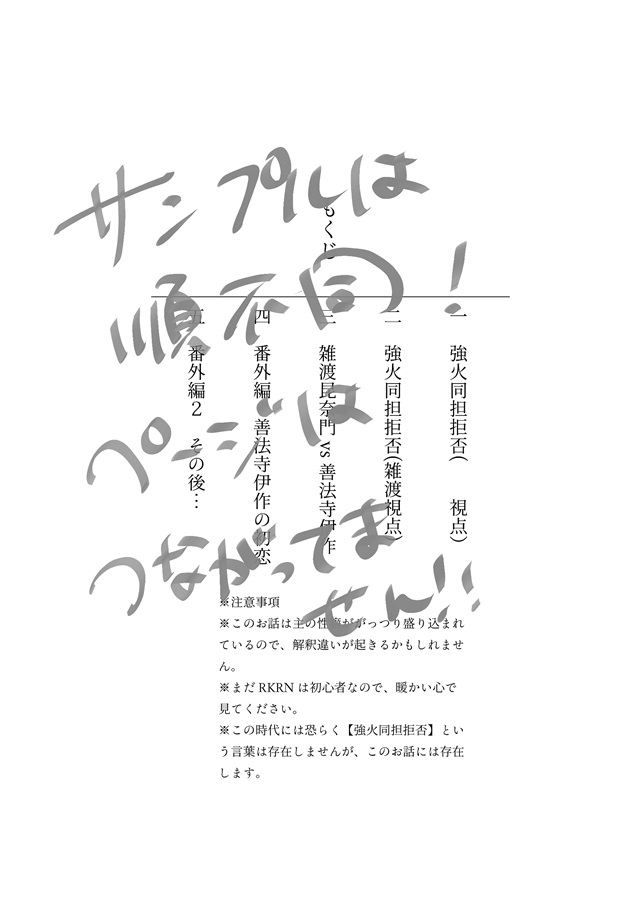 サンプルは
順不同!
ページは
つながってま
せん!!
もくじ
一 強火同担拒否(　　視点)
二 強火同担拒否(雑渡視点)
三 雑渡昆奈門 vs 善法寺伊作
四 番外編 善法寺伊作の初恋
五 番外編2 その後…
※注意事項
※このお話は主の性癖ががっつり盛り込まれ
ているので、解釈違いが起きるかもしれませ
ん。
※まだ RKRN は初心者なので、暖かい心で
見てください。
※この時代には恐らく【強火同担拒否】とい
う言葉は存在しませんが、このお話には存在
します。